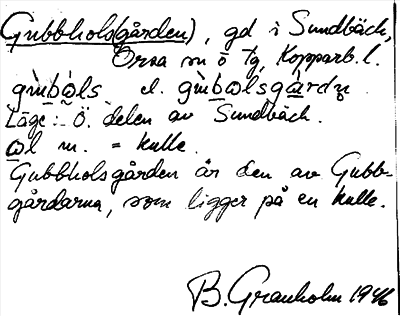 Gubbhols(gården), gd i Sundbäck,
Orsa sn ö tg, Kopparb. l.
gùbo̲ls el. gùbo̲lsgà̲rdn̥.
Läge: Ö. delen av Sundbäck.
o̲l m. = kulle.
Gubbholsgården är den av Gubb-
gårdarna, som ligger på en kulle.
B. Granholm 1946